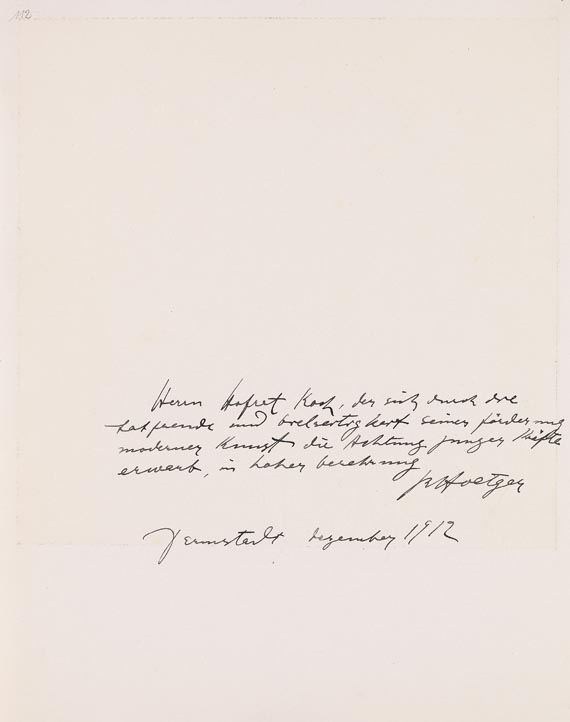 112
Herrn Hofrat Koch, der sich durch die
und vielseitigkeit seiner förderung
moderner Kunst die Achtung junger Kräfte
erwarb, in hoher verehrung
B Hoetger
Darmstadt dezember 1912